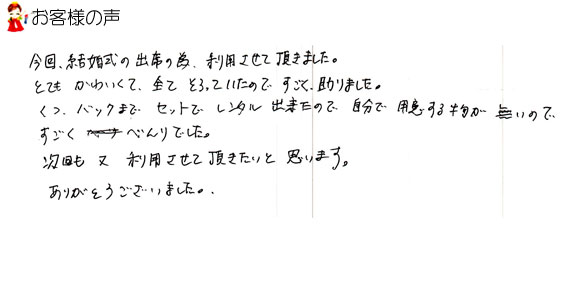 お客様の声
今回、結婚式の出席の為、利用させて頂きました。
とても かわいくて、全て そろっていたので すごく、助りました。
くつ、バックまで セットで レンタル 出来たので 自分で 用意する物が 無いので、
すごく べんりでした。
次回も 又 利用させて頂きたいと 思います。
ありがとうございました。